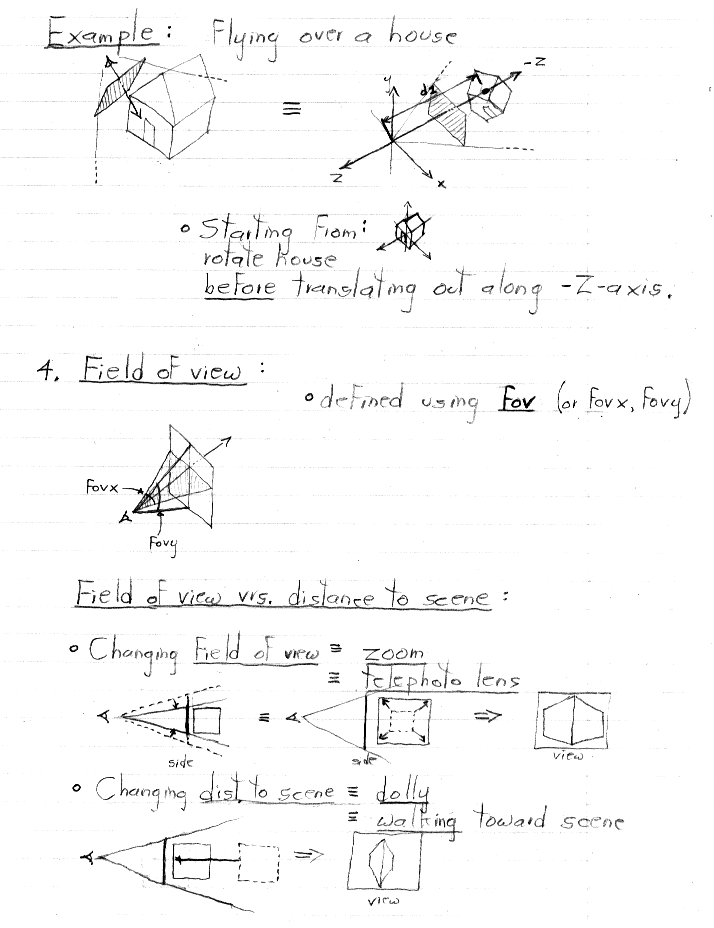 Example: Flying over a house
-Z
y
d1
Z
x
• Starting From:
rotate house
before translating out along -Z-axis.
4. Field of view :
• defined using Fov (or Fovx, Fovy)
Fovx
Fovy
Field of view vrs. distance to scene :
• Changing Field of view ≡ zoom
≡ telephoto lens
≡ ⇒
side side view
• Changing dist. to scene ≡ dolly
≡ walking toward scene
⇒
view